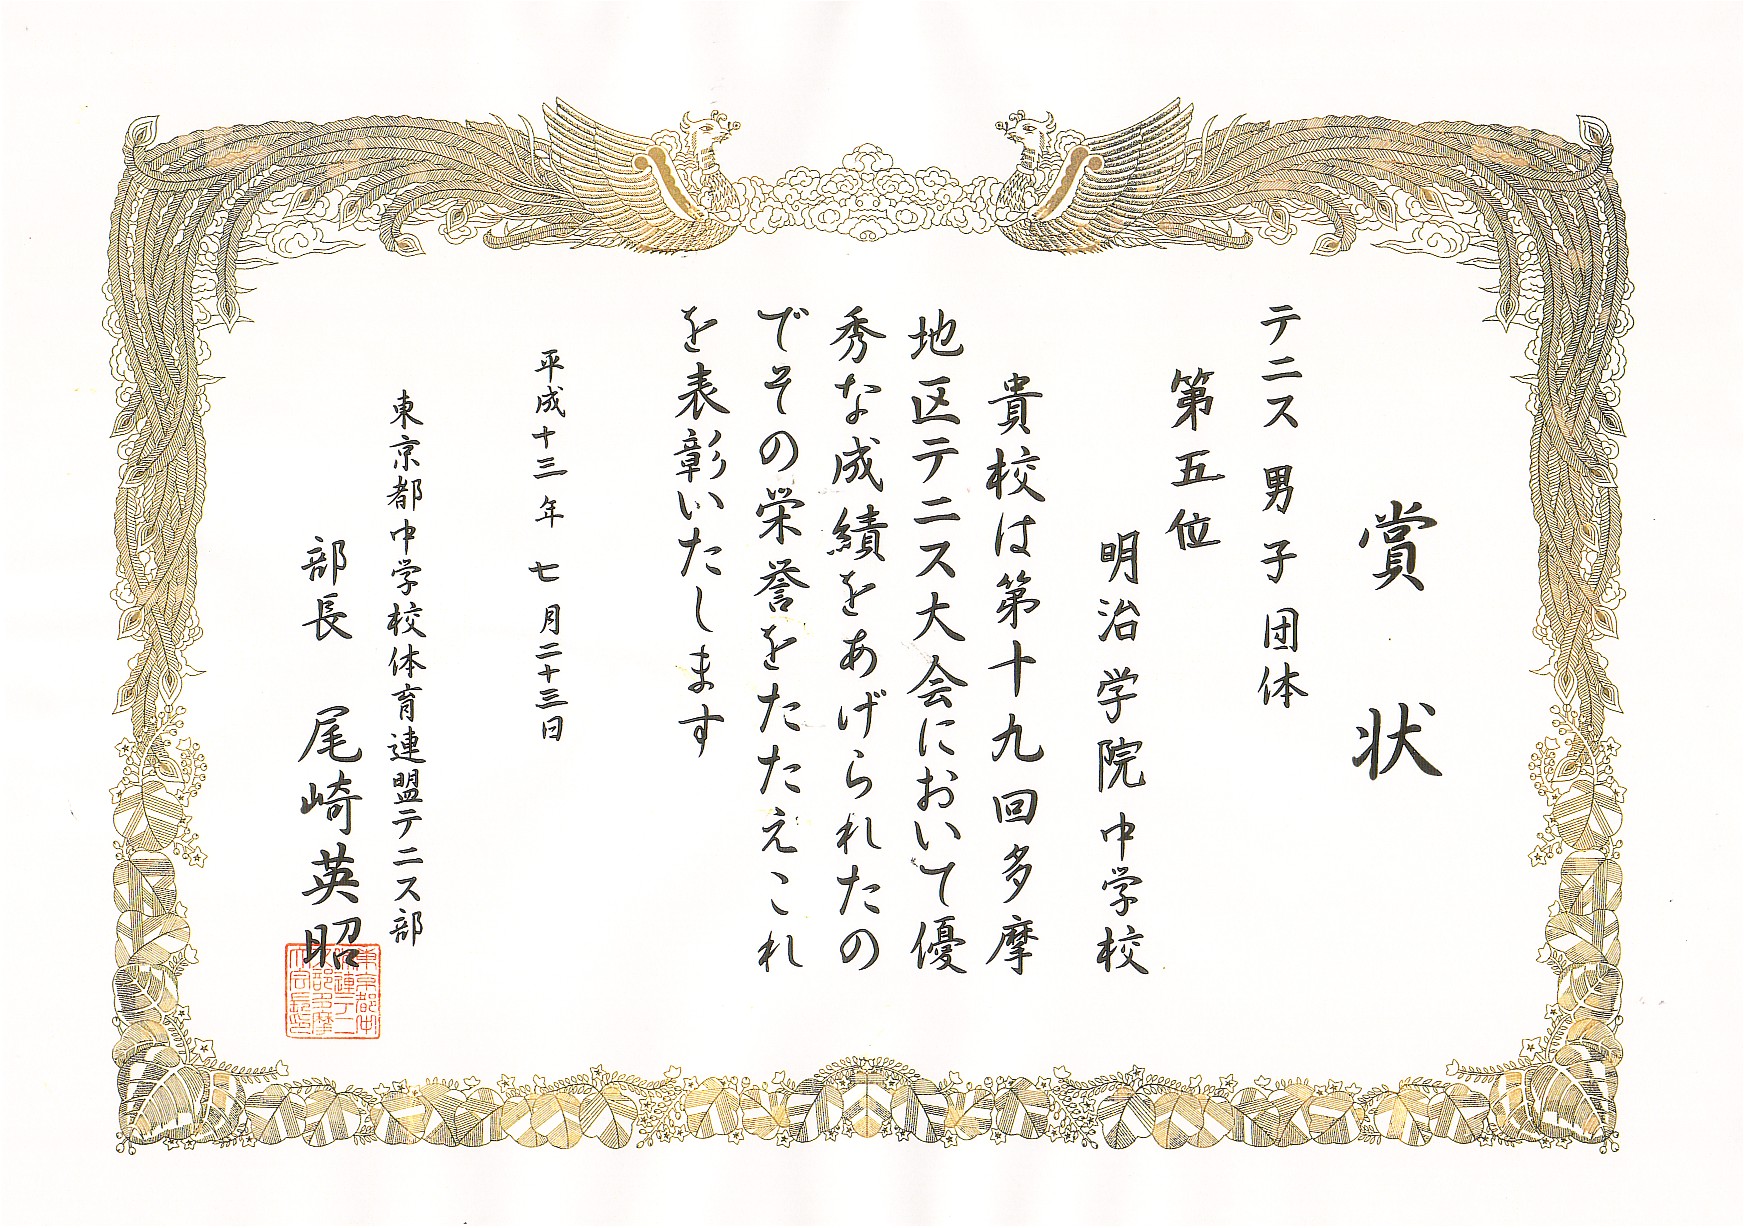 賞状
テニス 男子団体
第五位
明治学院中学校
貴校は第十九回多摩
地区テニス大会において優
秀な成績をあげられたの
でその栄誉をたたえこれ
を表彰いたします
平成十三年 七月二十三日
東京都中学校体育連盟テニス部
部長 尾崎英昭